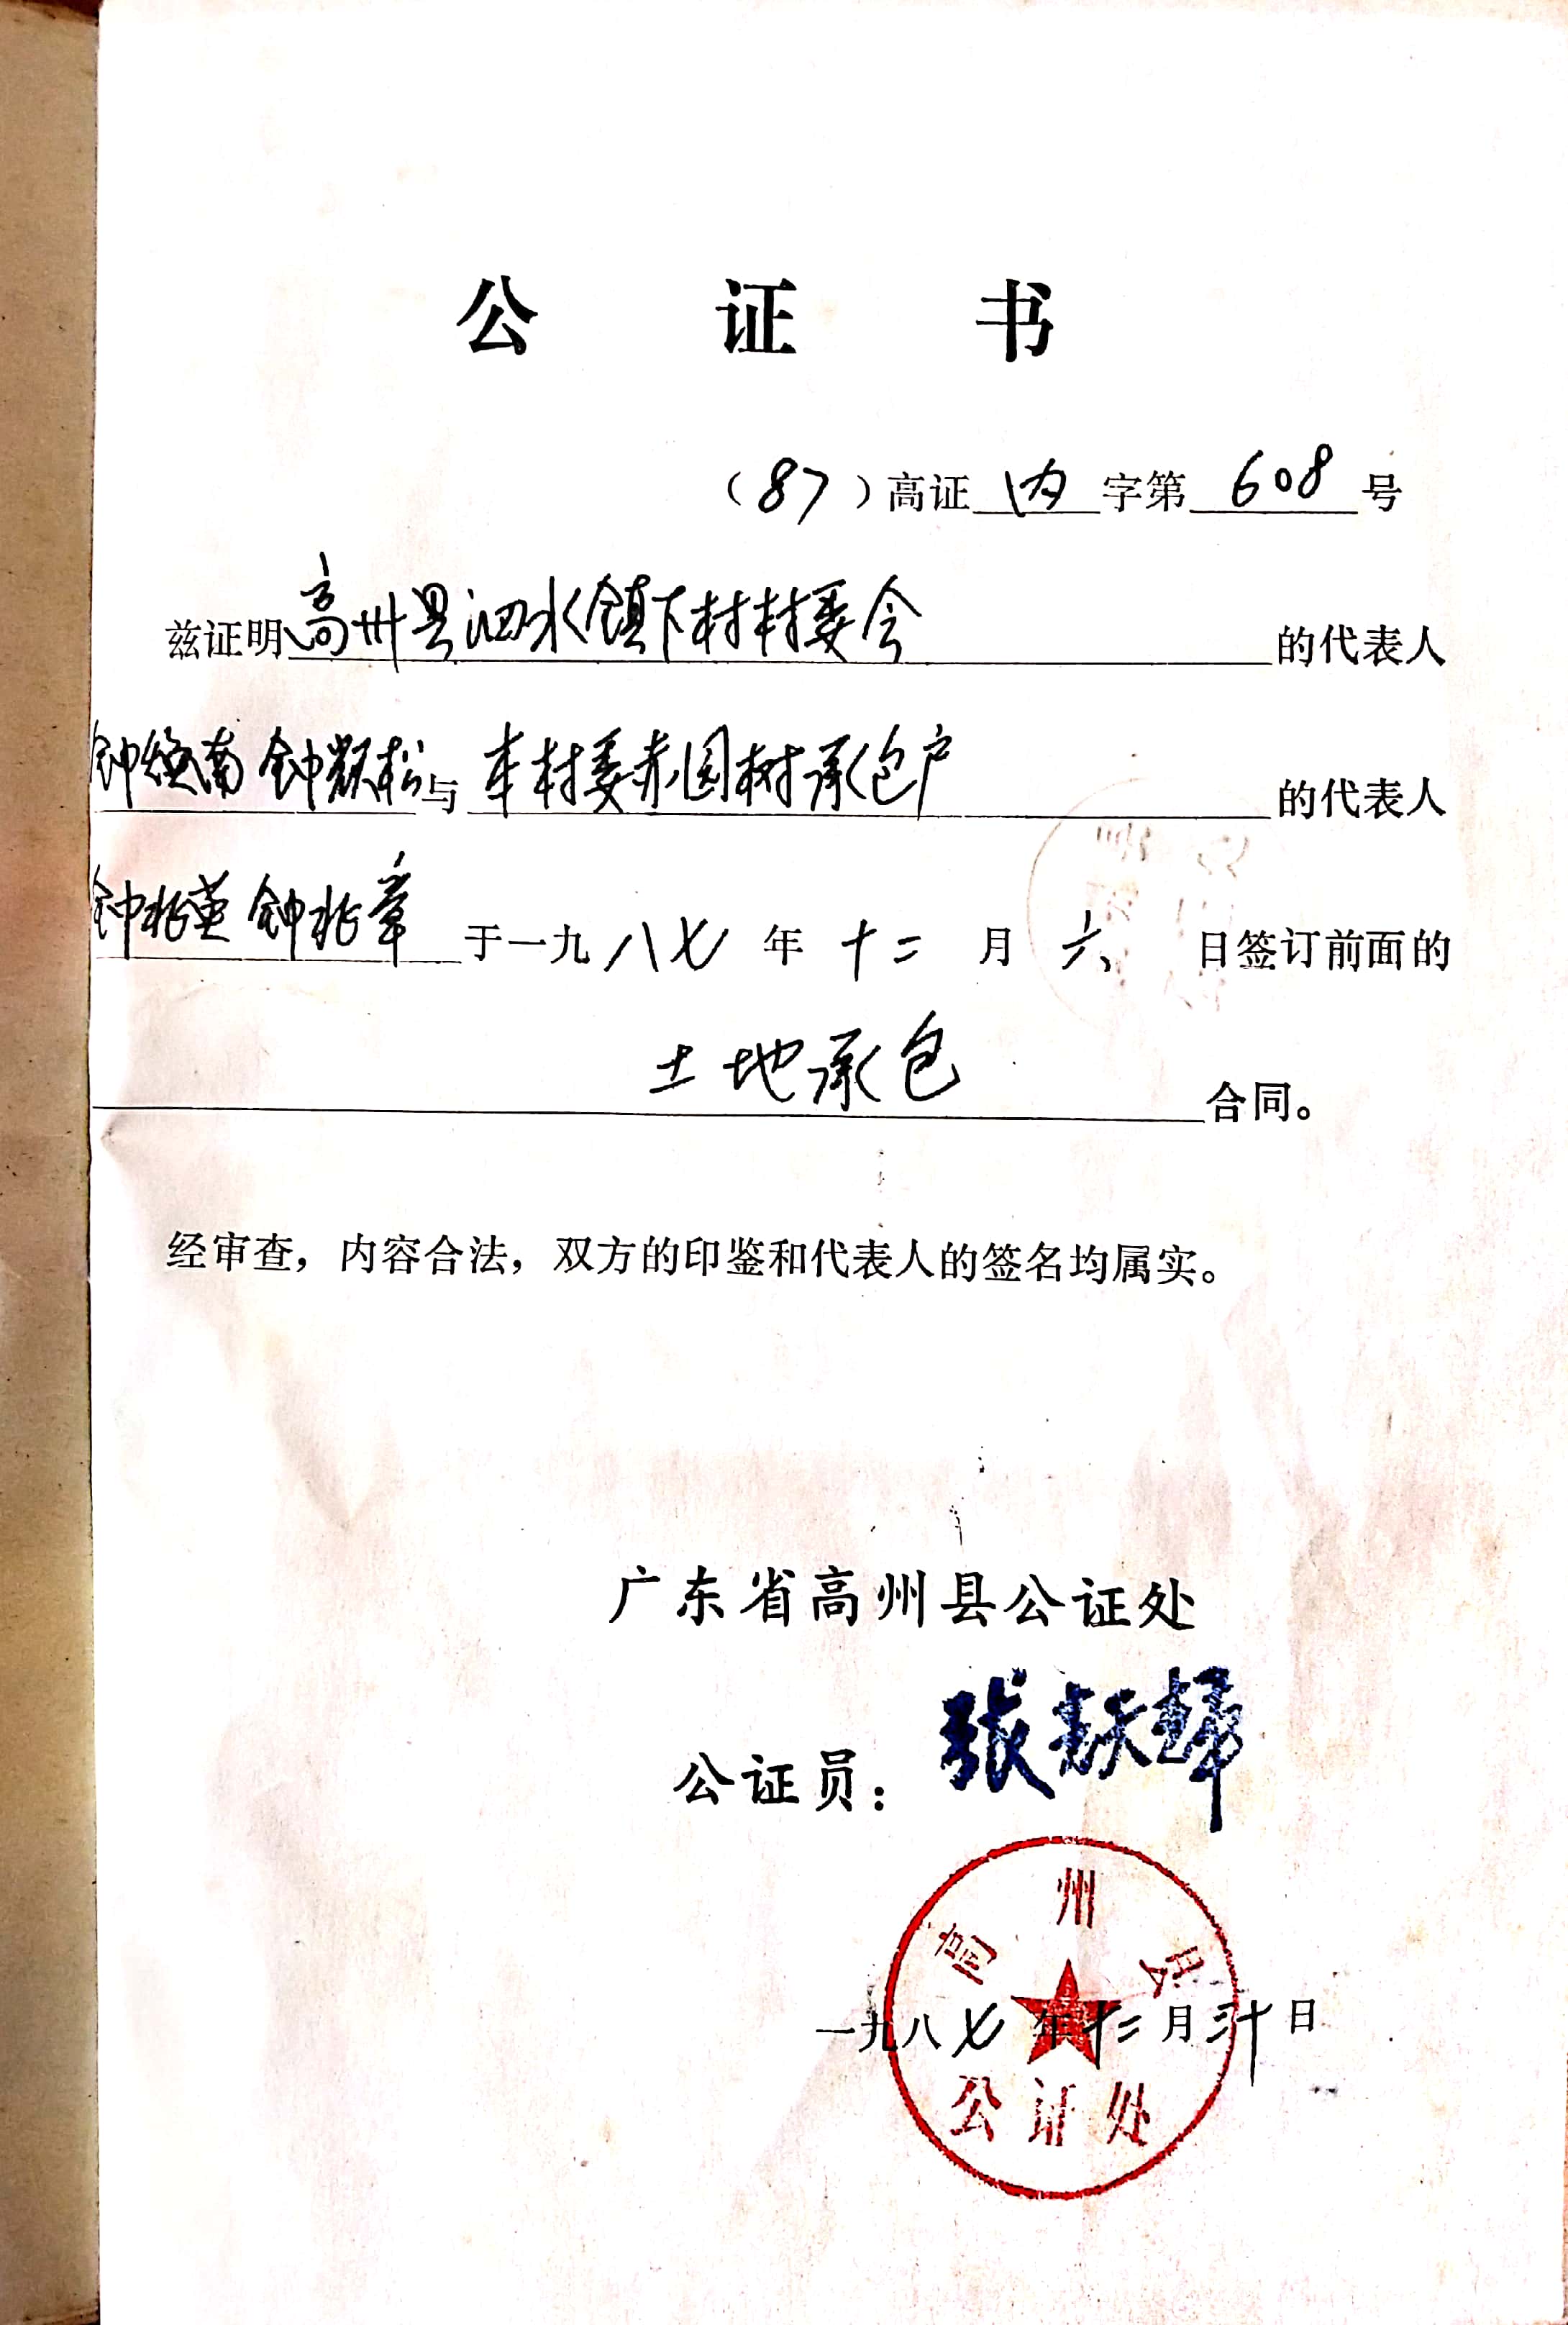 公证书
（87）高证内字第608号
兹证明高州县泗水镇下村村委会的代表人
钟焕南 钟松与本村委赤园树承包户的代表人
钟兆英 钟兆章于一九八七年十二月六日签订前面的
土地承包合同。
经审查，内容合法，双方的印鉴和代表人的签名均属实。
广东省高州县公证处
公证员：张
高州县
一九八七年十二月三十日
公证处